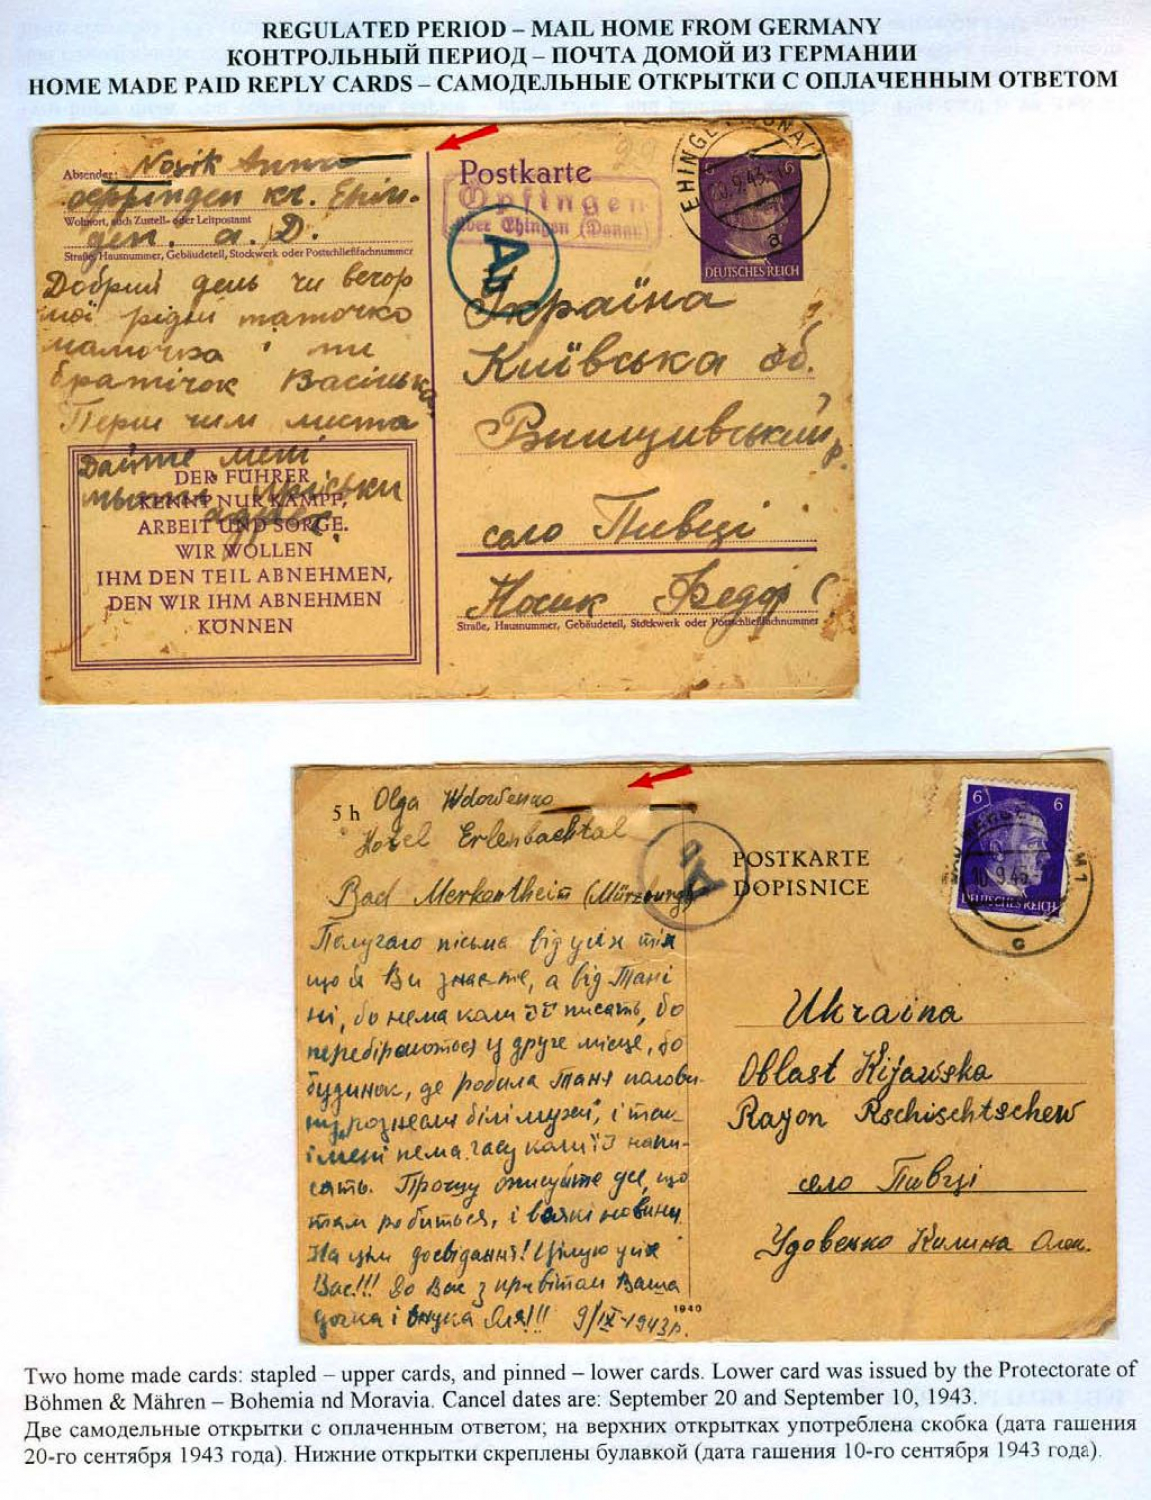 REGULATED PERIOD – MAIL HOME FROM GERMANY
КОНТРОЛЬНЫЙ ПЕРИОД – ПОЧТА ДОМОЙ ИЗ ГЕРМАНИИ
HOME MADE PAID REPLY CARDS – САМОДЕЛЬНЫЕ ОТКРЫТКИ С ОПЛАЧЕННЫМ ОТВЕТОМ
Absender: Novik Anna
Oepfingen kr. Ehin-
Wohnort, auch Zustell- oder Leitpostamt
gen. a. D.
Straße, Hausnummer, Gebäudeteil, Stockwerk oder Postschließfachnummer
Добрий день чи вечор
мої рідні таточко
мамочка і ти
братічок Васілько
Перш чим листа
Дайте мені
адрес.
DER FÜHRER
KENNT NUR KAMPF,
ARBEIT UND SORGE.
WIR WOLLEN
IHM DEN TEIL ABNEHMEN,
DEN WIR IHM ABNEHMEN
KÖNNEN
Postkarte
Öpfingen
über Ehingen (Donau)
Ad
EHINGEN (DONAU)
20.9.43
a
6 6
DEUTSCHES REICH
Україна
Київська об.
Ржищивський р.
село Пивці
Носик Федор С
Straße, Hausnummer, Gebäudeteil, Stockwerk oder Postschließfachnummer
5 h Olga Wdowenko
Hotel Erlenbachtal
Bad Merkentheim (Würzburg)
Получаю пісьма від усіх тіх
що й Ви знаєте, а від Тані
ні, бо нема коли їй писать, бо
перебіраються у друге місце, бо
будинок, де робила Таня полови-
ну рознесли білі мухи", і так
і мені нема часу коли їй напи-
сать. Прошу опишіте усе, що
там робиться, і всякі новини
На цім досвідання! Цілую усіх
Вас!!! До Вас з привітам Ваша
дочка і внука Оля!!! 9/IX-1943р.
1940
Ad
POSTKARTE
DOPISNICE
6 6
10.9.43
DEUTSCHES REICH
c
Ukraina
Oblast Kijawska
Rayon Rschischtschew
село Пивці
Удовенко Килина Олек.
Two home made cards: stapled – upper cards, and pinned – lower cards. Lower card was issued by the Protectorate of
Böhmen & Mähren – Bohemia nd Moravia. Cancel dates are: September 20 and September 10, 1943.
Две самодельные открытки с оплаченным ответом; на верхних открытках употреблена скобка (дата гашения
20-го сентября 1943 года). Нижние открытки скреплены булавкой (дата гашения 10-го сентября 1943 года).